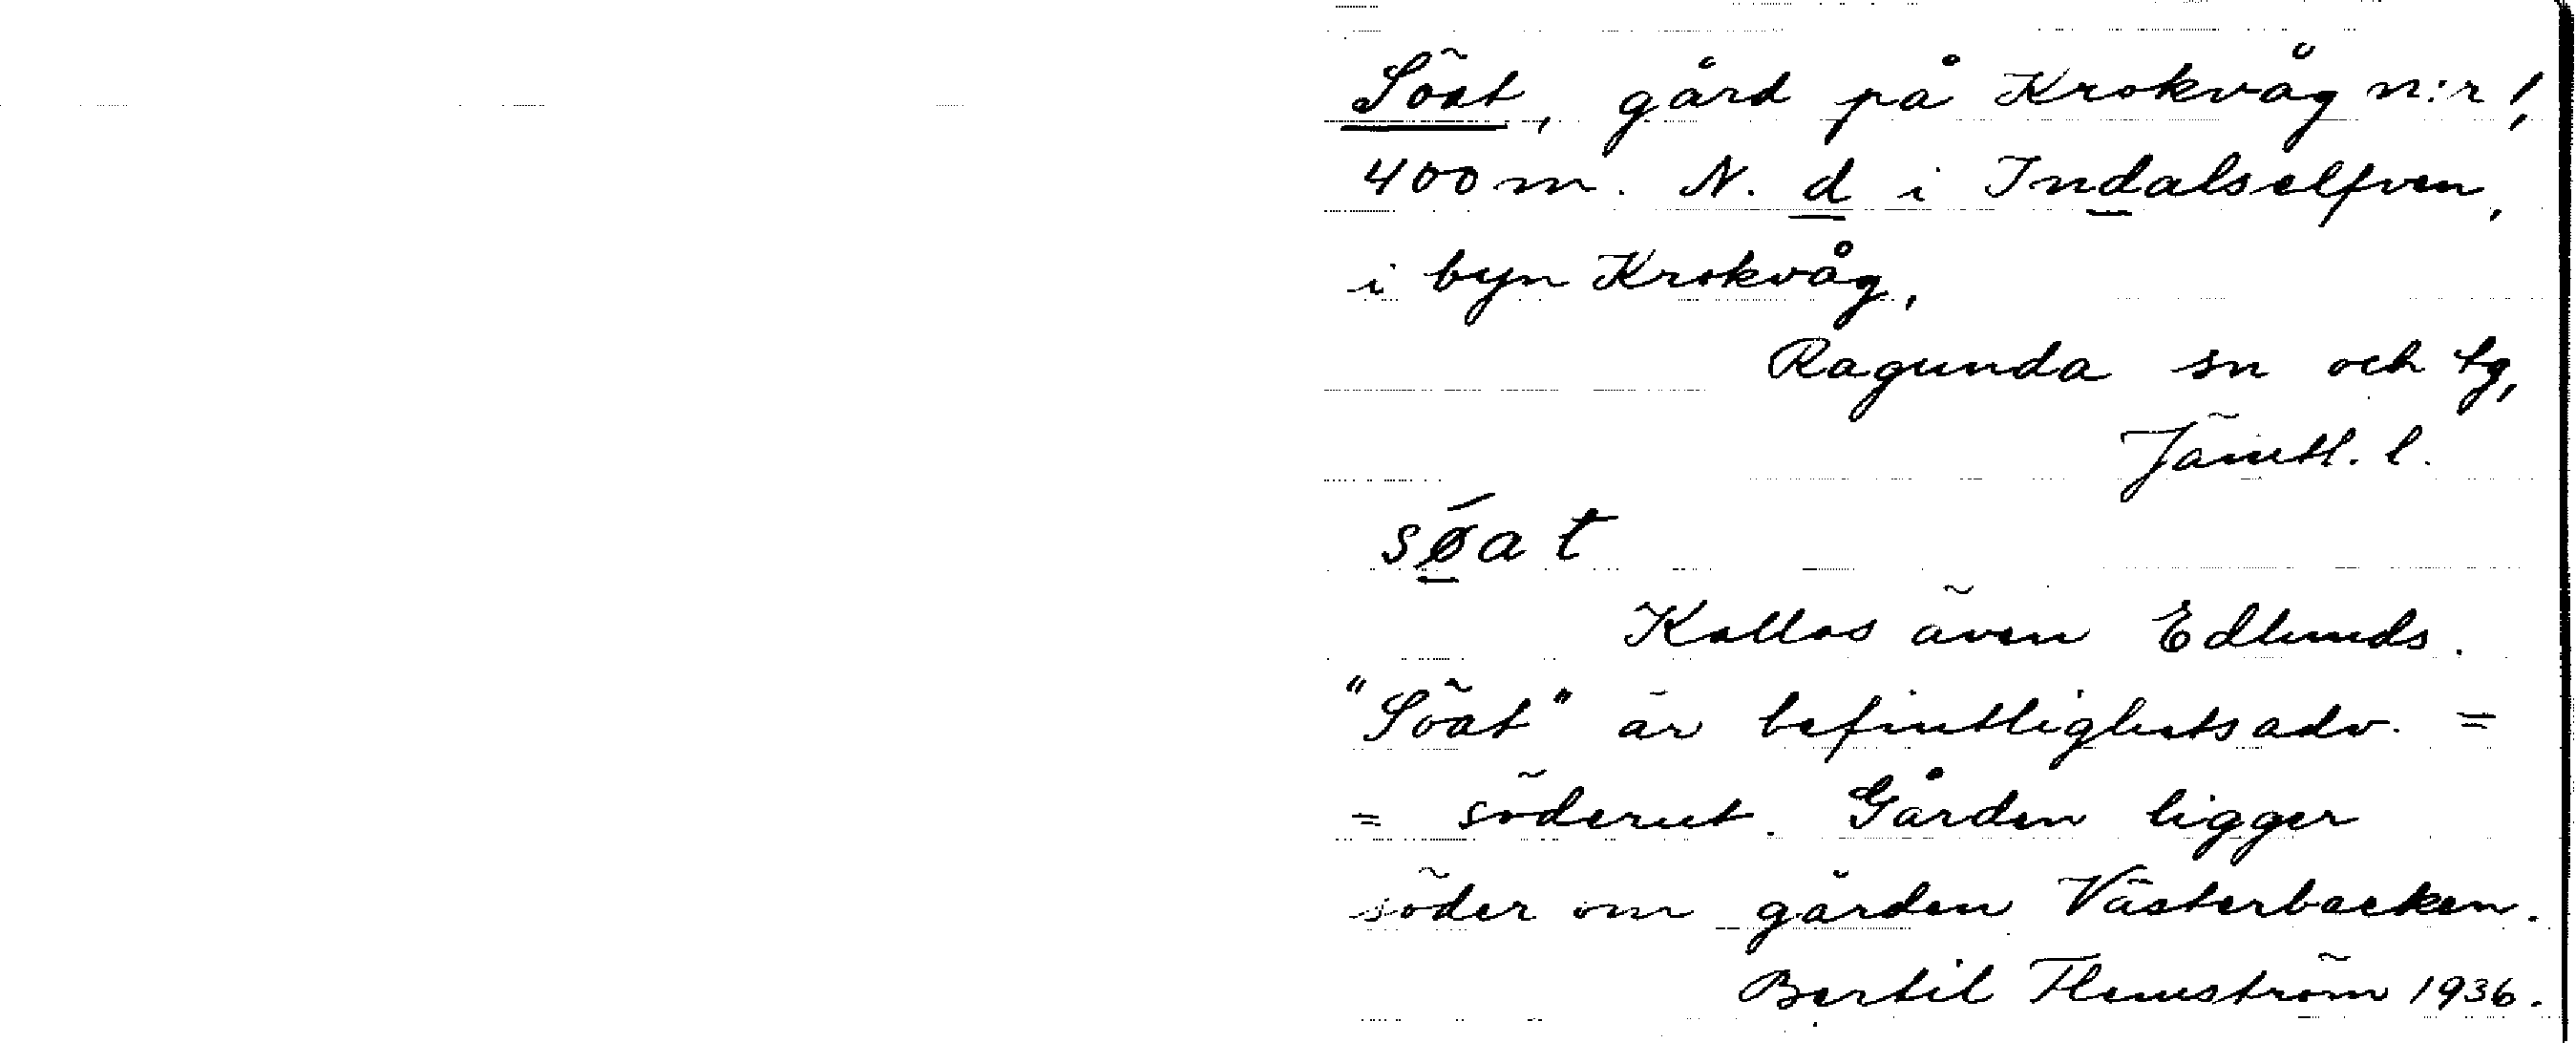 Söat, gård på Krokvåg n:r 1,
400 m. N. d i Indalselfven,
i byn Krokvåg,
Ragunda sn och tg,
Jämtl. l.
sǿat
Kallas även Edlunds.
"Söat" är befintlighetsadv. =
= söderut. Gården ligger
söder om gården Västerbacken.
Bertil Flemström 1936.